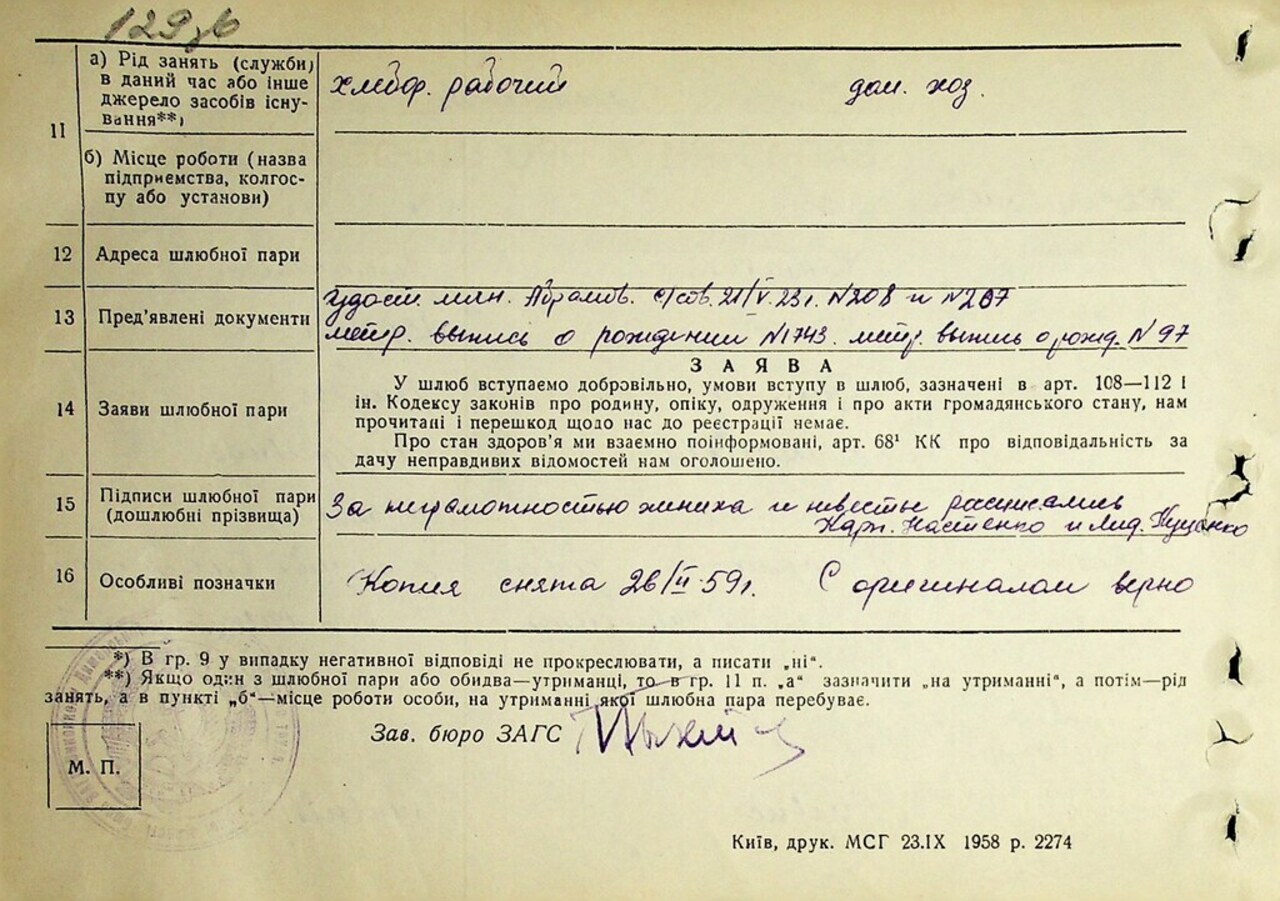 129зв
11
а) Рід занять (служби)
в даний час або інше
джерело засобів існу-
вання**)
хлебор. рабочий
дом. хоз.
б) Місце роботи (назва
підприемства, колгос-
пу або установи)
12
Адреса шлюбної пари
13
Пред'явлені документи
удост. млн. Абрамов. с/сов. 21/V. 23 г. N208 и N207
метр. выпись о рождении N1743. метр. выпись о рожд. N 97
14
Заяви шлюбної пари
ЗАЯВА
У шлюб вступаємо добровільно, умови вступу в шлюб, зазначені в арт. 108—112 і
ін. Кодексу законів про родину, опіку, одруження і про акти громадянського стану, нам
прочитані і перешкод щодо нас до реєстрації немає.
Про стан здоров'я ми взаємно поінформовані, арт. 68¹ КК про відповідальність за
дачу неправдивих відомостей нам оголошено.
15
Підписи шлюбної пари
(дошлюбні прізвища)
За неграмотностью жениха и невесты расписались
Карп. Настенко и Лид. Куценко
16
Особливі позначки
Копия снята 26/II 59 г. С оригиналом верно
*) В гр. 9 у випадку негативної відповіді не прокреслювати, а писати „ні“.
**) Якщо один з шлюбної пари або обидва—утриманці, то в гр. 11 п. „а“ зазначити „на утриманні“, а потім—рід
занять, а в пункті „б“—місце роботи особи, на утриманні якої шлюбна пара перебуває.
Зав. бюро ЗАГС
М. П.
Київ, друк. МСГ 23.IX 1958 р. 2274